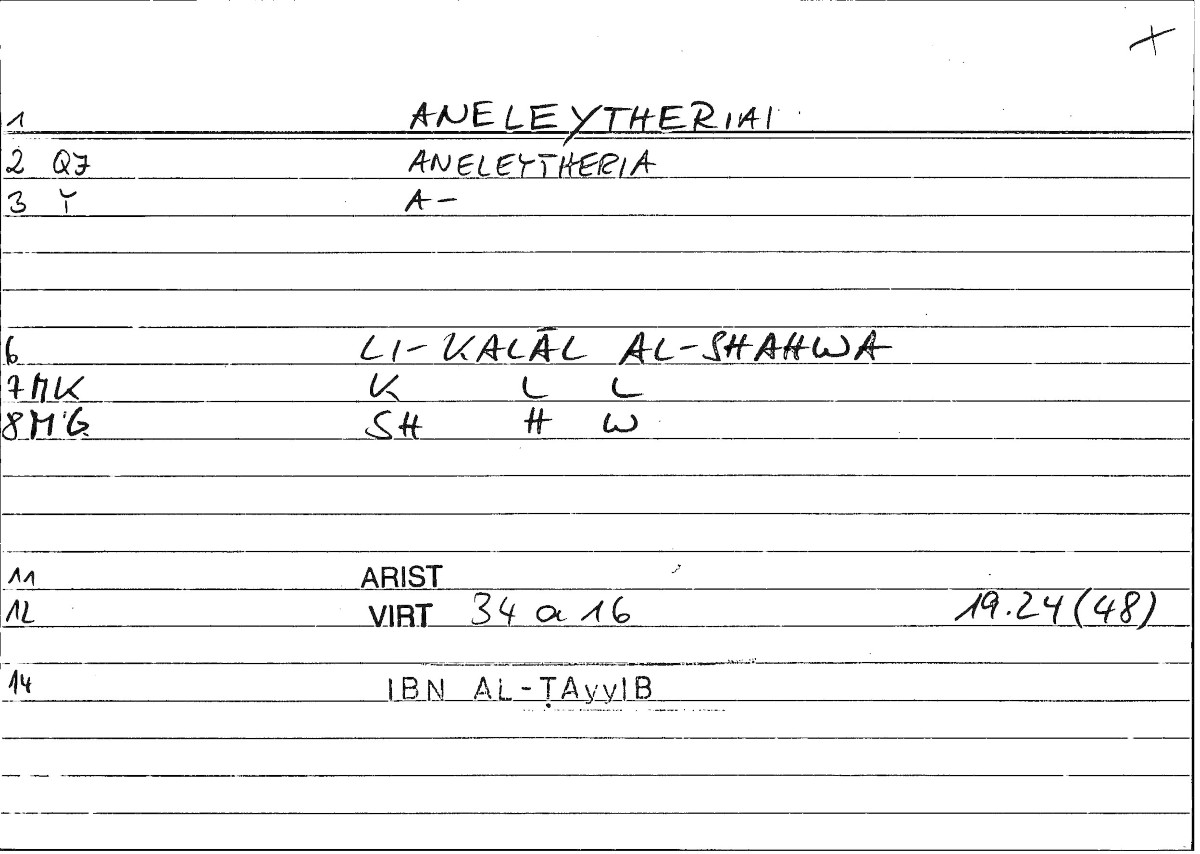 +
1 ANELEYTHERIAI
2 QJ ANELEYTHERIA
3 Y A-
6 LI-KALĀL AL-SHAHWA
7 MK K L L
8 MG SH H W
11 ARIST
12 VIRT 34 a 16 19.24(48)
14 IBN AL-ṬAyyIB